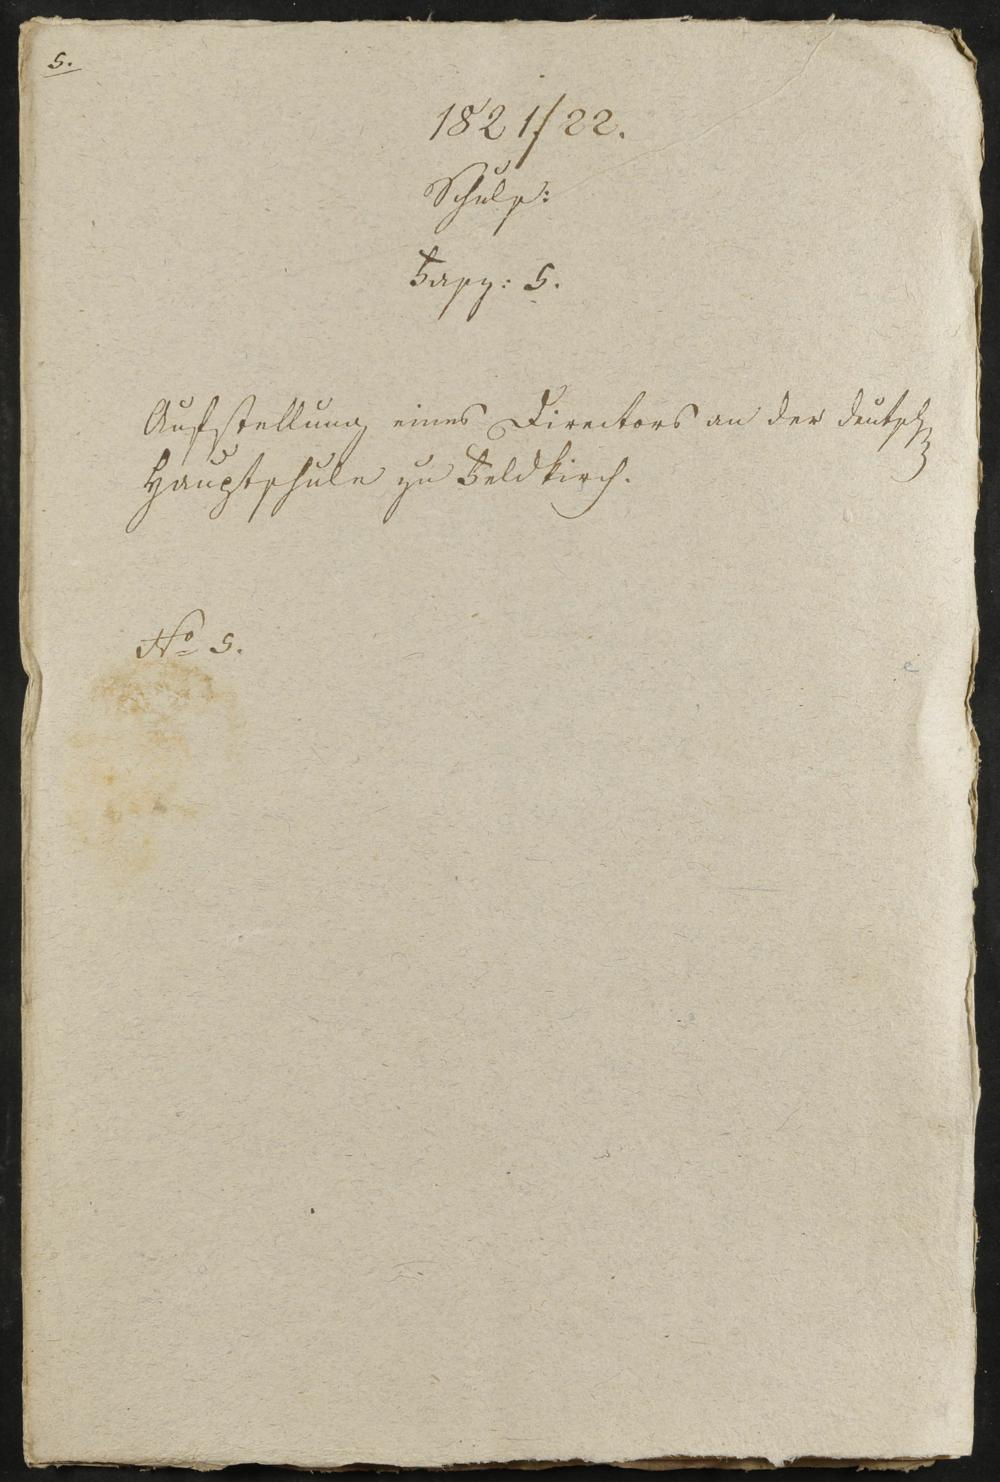 5.
1821/22.
Schule:
Fasz: 5.
Aufstellung eines Directors an der deutsch
Hauptschule zu Feldkirch.
No 5.